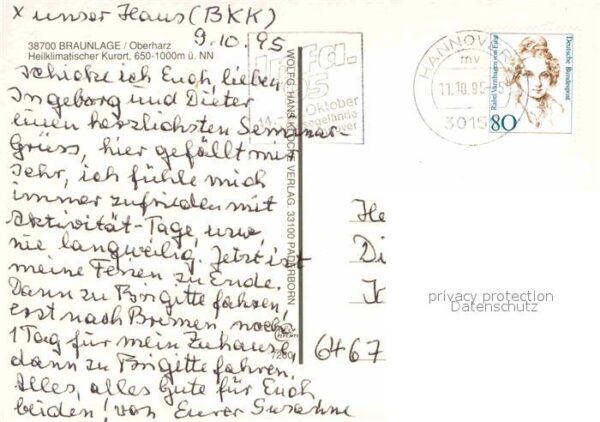 x unser Haus (BKK)
9.10.95
38700 BRAUNLAGE / Oberharz
Heilklimatischer Kurort, 650-1000m ü. NN
schicke ich Euch lieben
Ingeborg und Dieter
einen herzlichsten Seminar-
Grüss, hier gefällt mir
sehr, ich fühle mich
immer zufrieden mit
Aktivität-Tage, usw,
nie langweilig. Jetzt ist
meine Ferien zu Ende.
Dann zu Brigitte fahren,
erst nach Bremen, noch
1 Tag für mein Zuhause
dann zu Brigitte fahren.
Alles, alles Gute für Euch
beiden! von Eurer Susanne
WOLFG. HANS KLOCKE VERLAG, 33100 PADERBORN
Infa.
95
Oktober
HANNOVER
mv
11.10.95
3015
Deutsche Bundespost
Rahel Varnhagen von Ense
80
He
Di
6467
privacy protection
Datenschutz